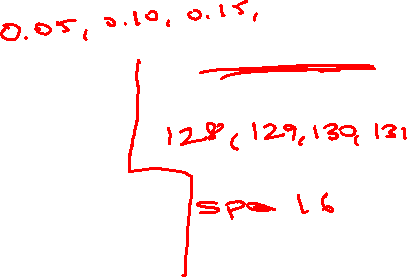 0.05, 0.10, 0.15,
128, 129, 130, 131
16